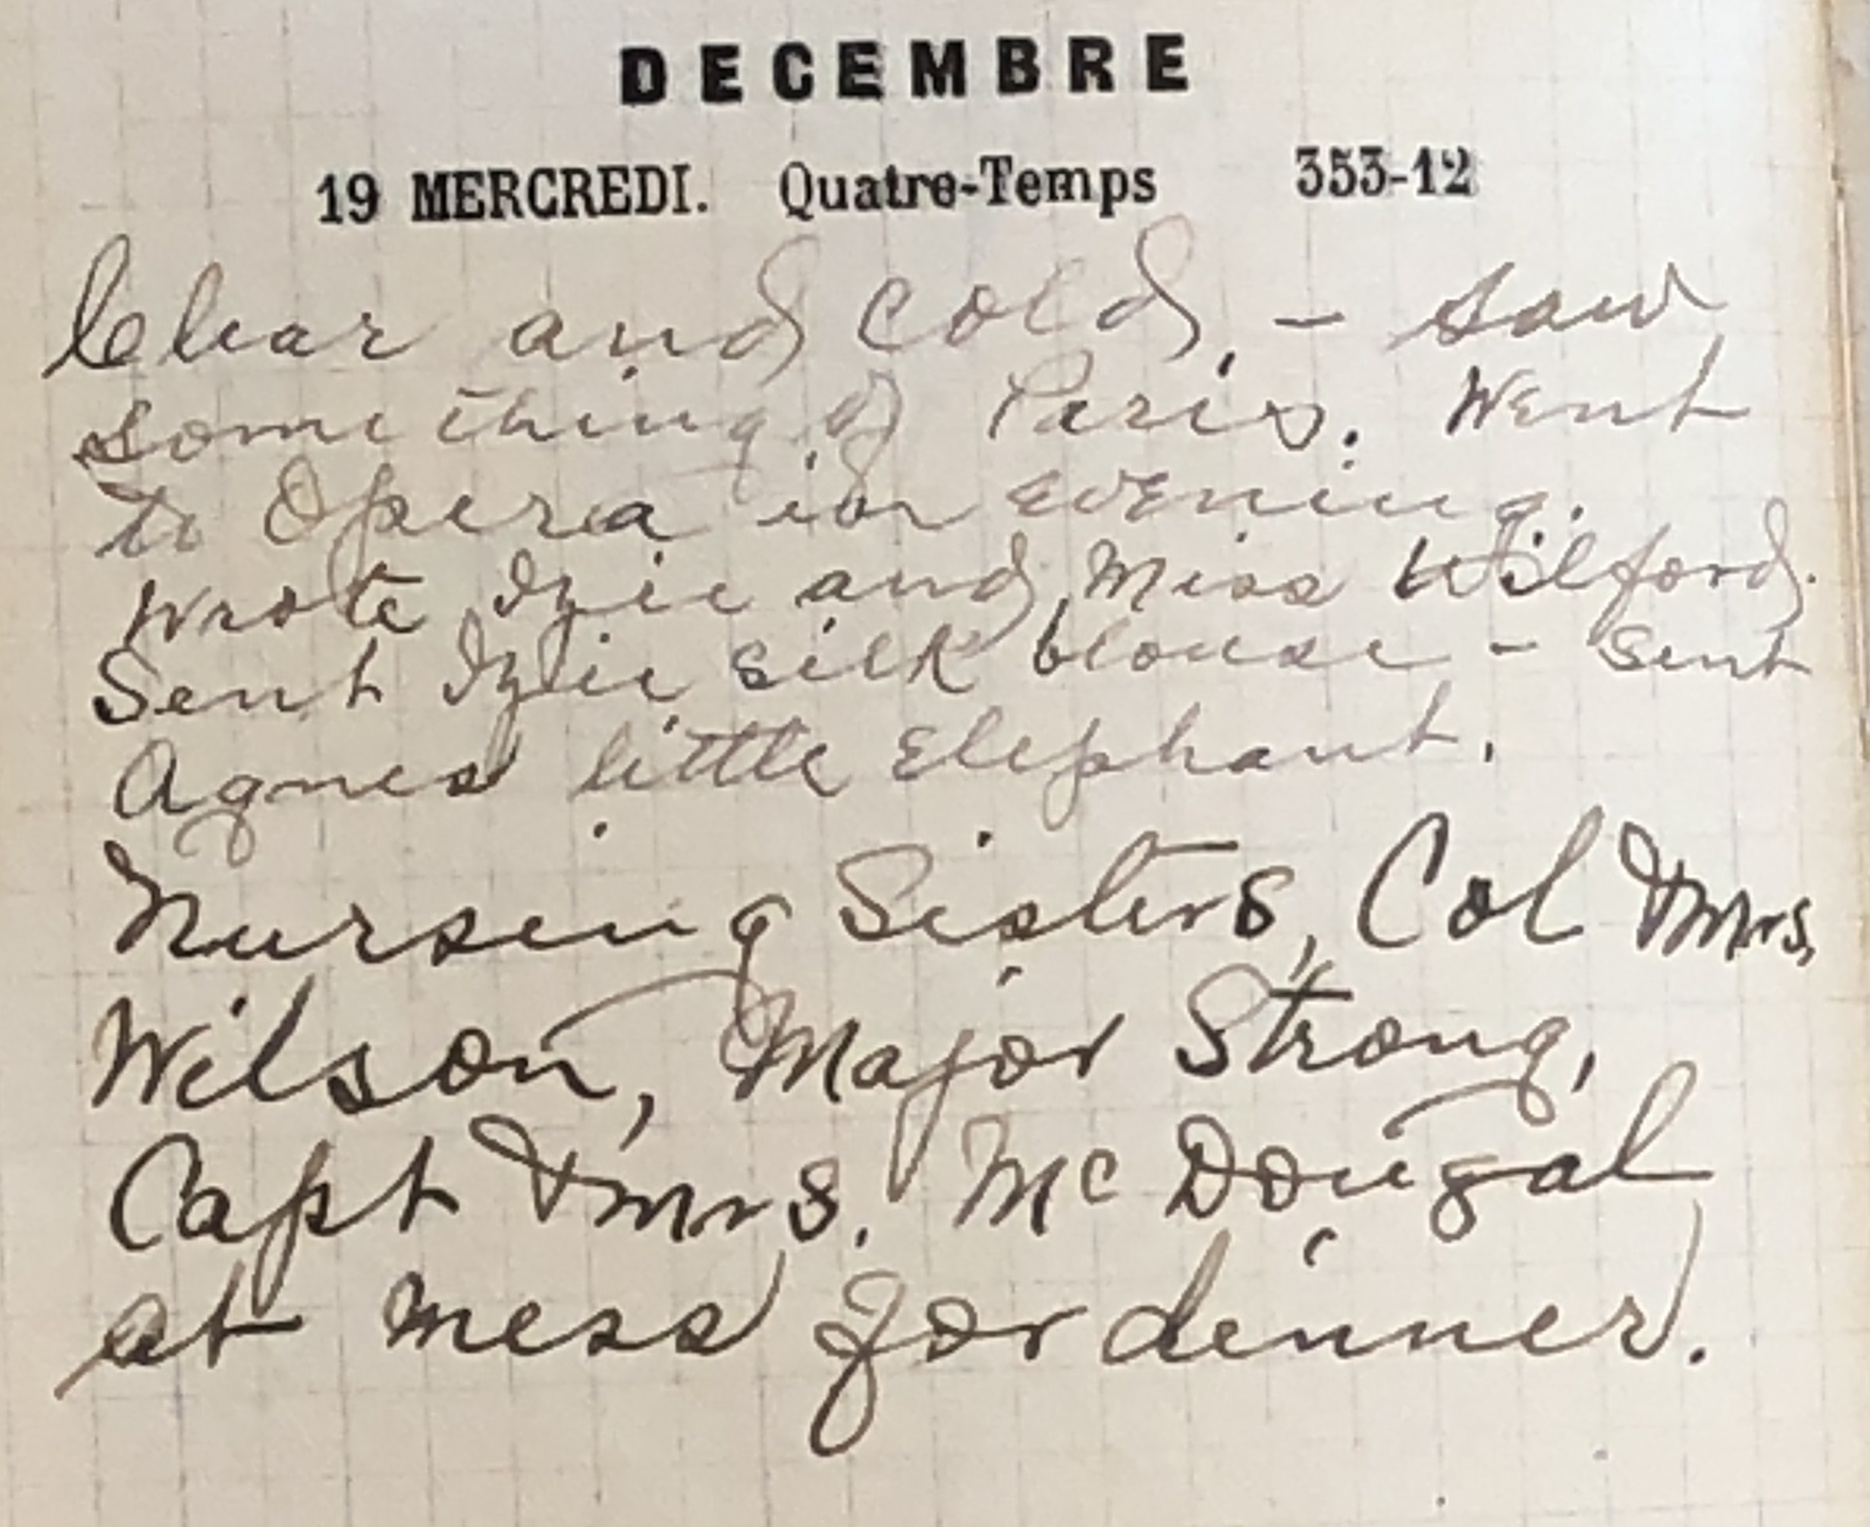 DECEMBRE
19 MERCREDI. Quatre-Temps 353-12
Clear and cold, - saw
something of Paris. Went
to Opera in evening.
Wrote Izie and Miss Wilford.
Sent Izie silk blouse - sent
Agnes little Elephant.
Nursing Sisters, Col & Mrs,
Wilson, Major Strong,
Capt & Mrs. McDougal
at mess for dinner.